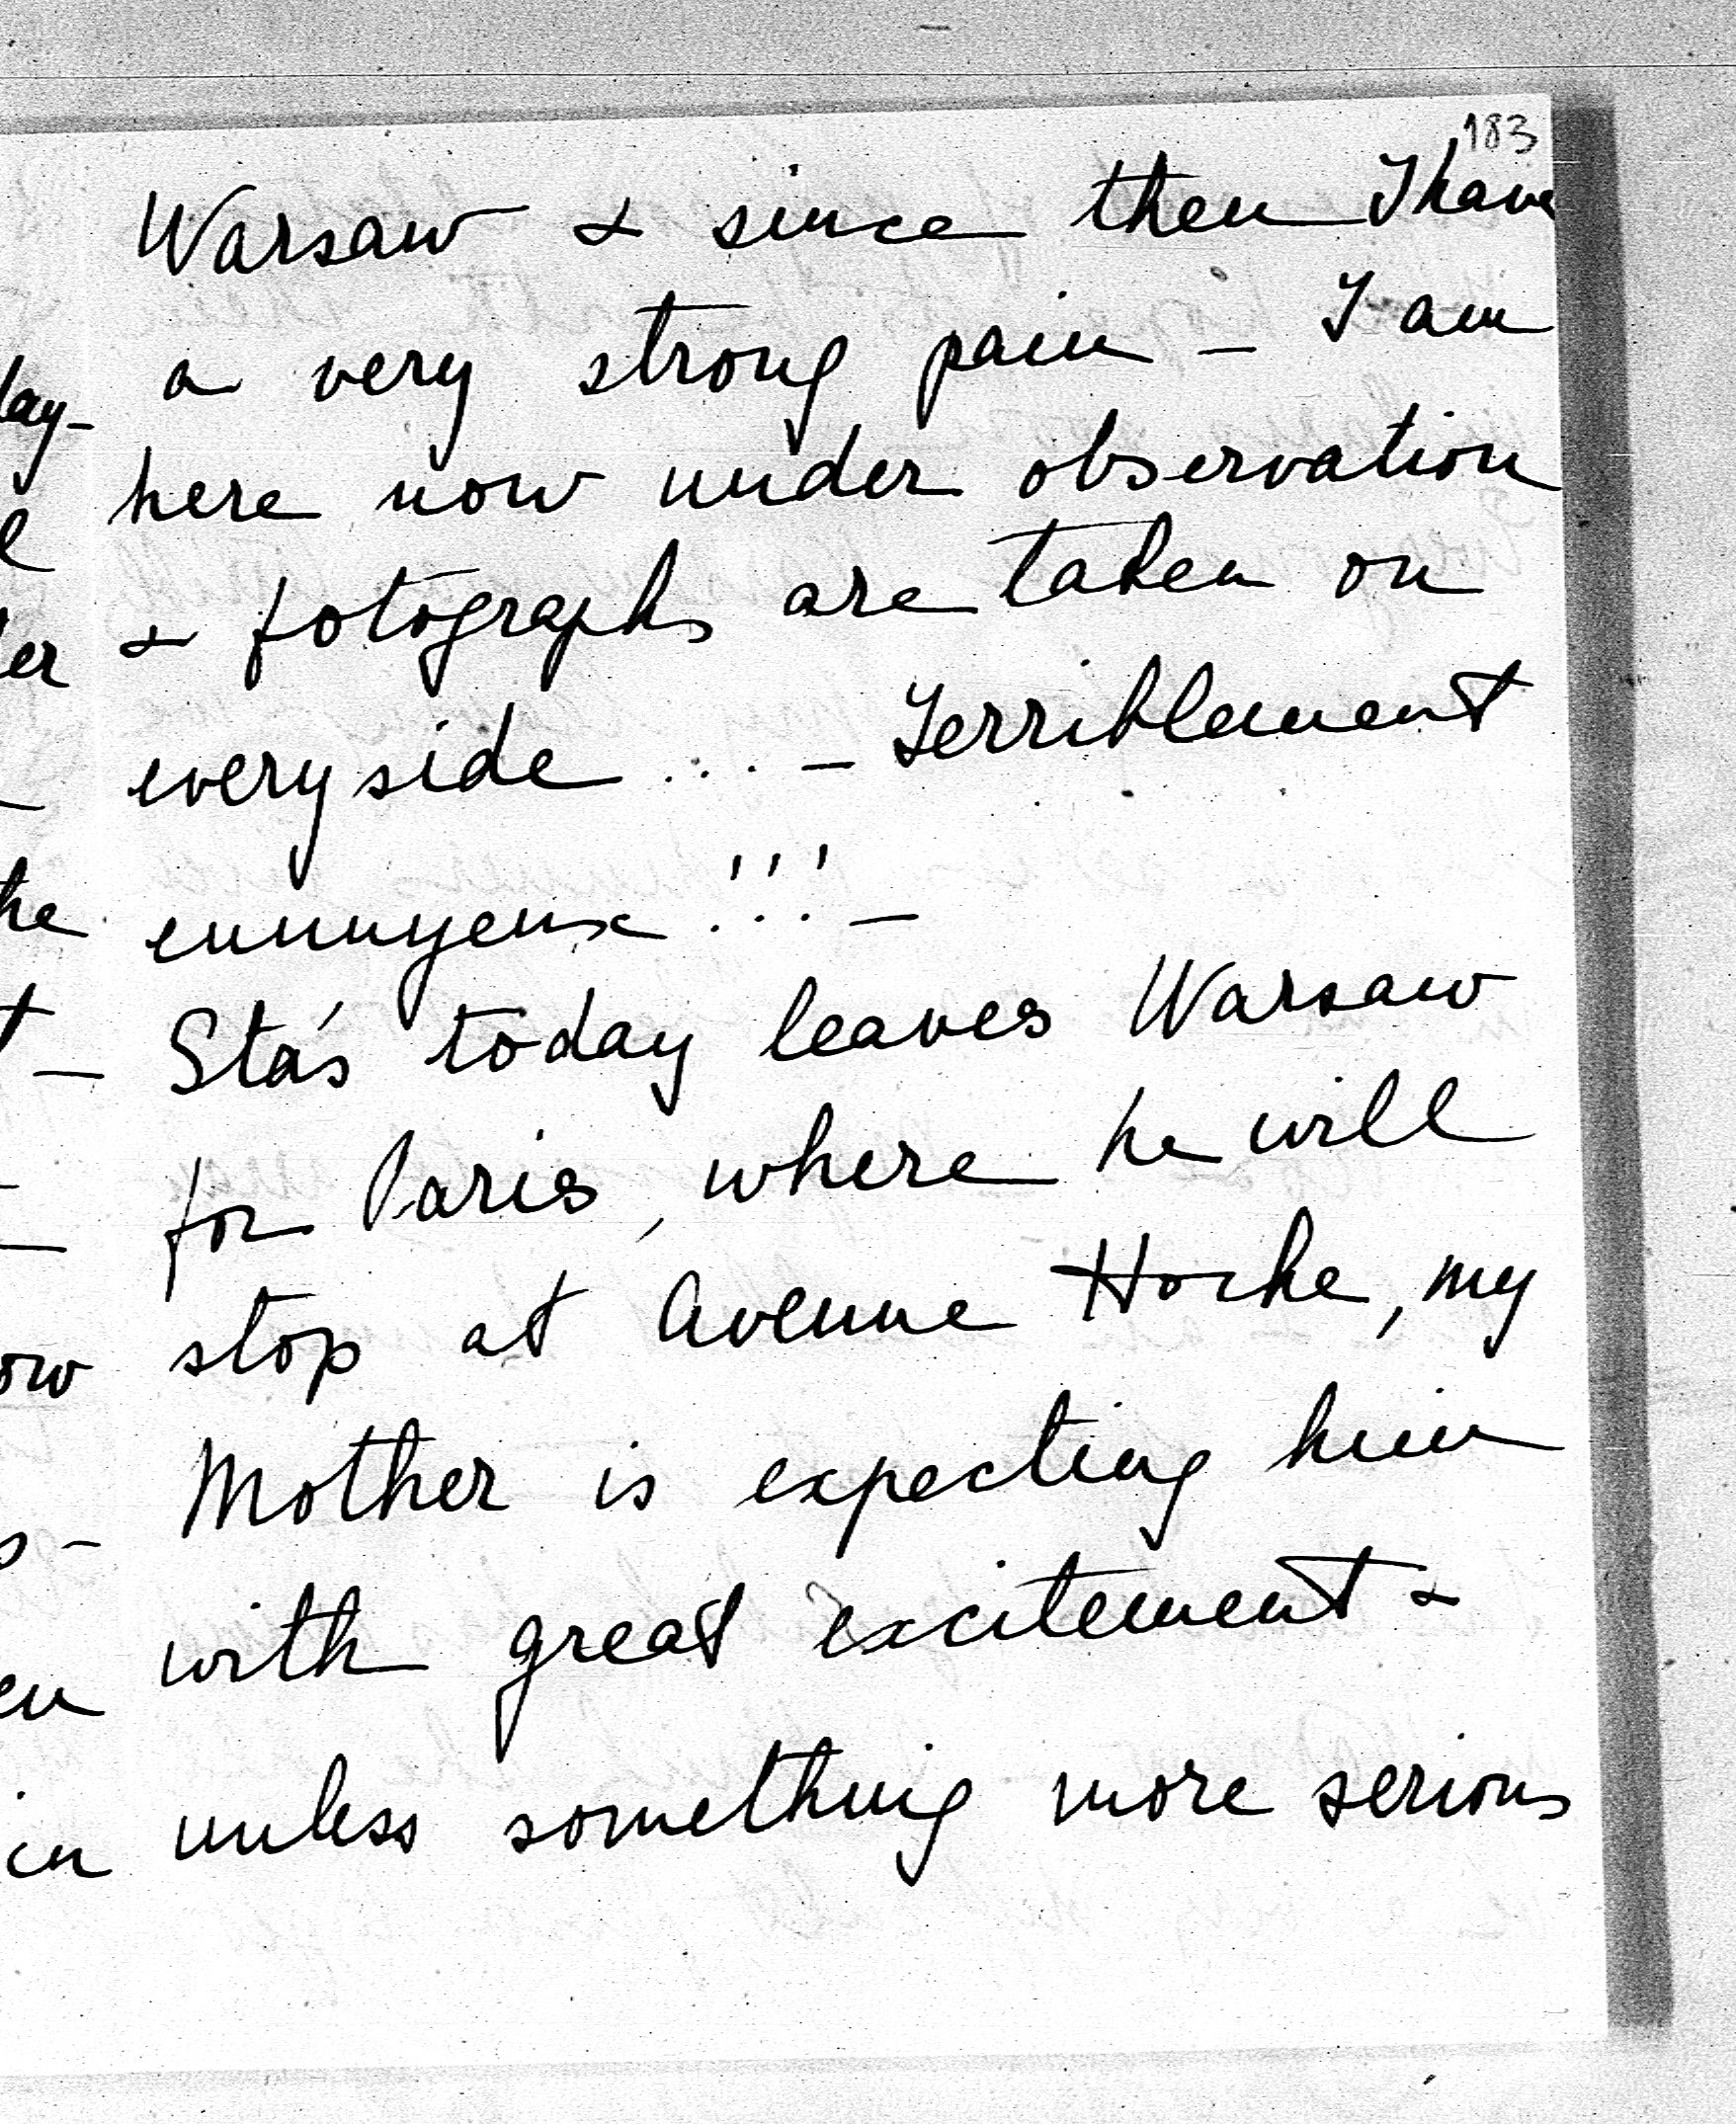 183
Warsaw & since then I have
a very strong pain _ I am
here now under observation
& fotographs are taken on
every side ... _ Terriblement
ennuyeux !!! _
_ Staś today leaves Warsaw
for Paris, where he will
stop at Avenue Hoche, my
Mother is expecting him
with great excitement &
unless something more serious